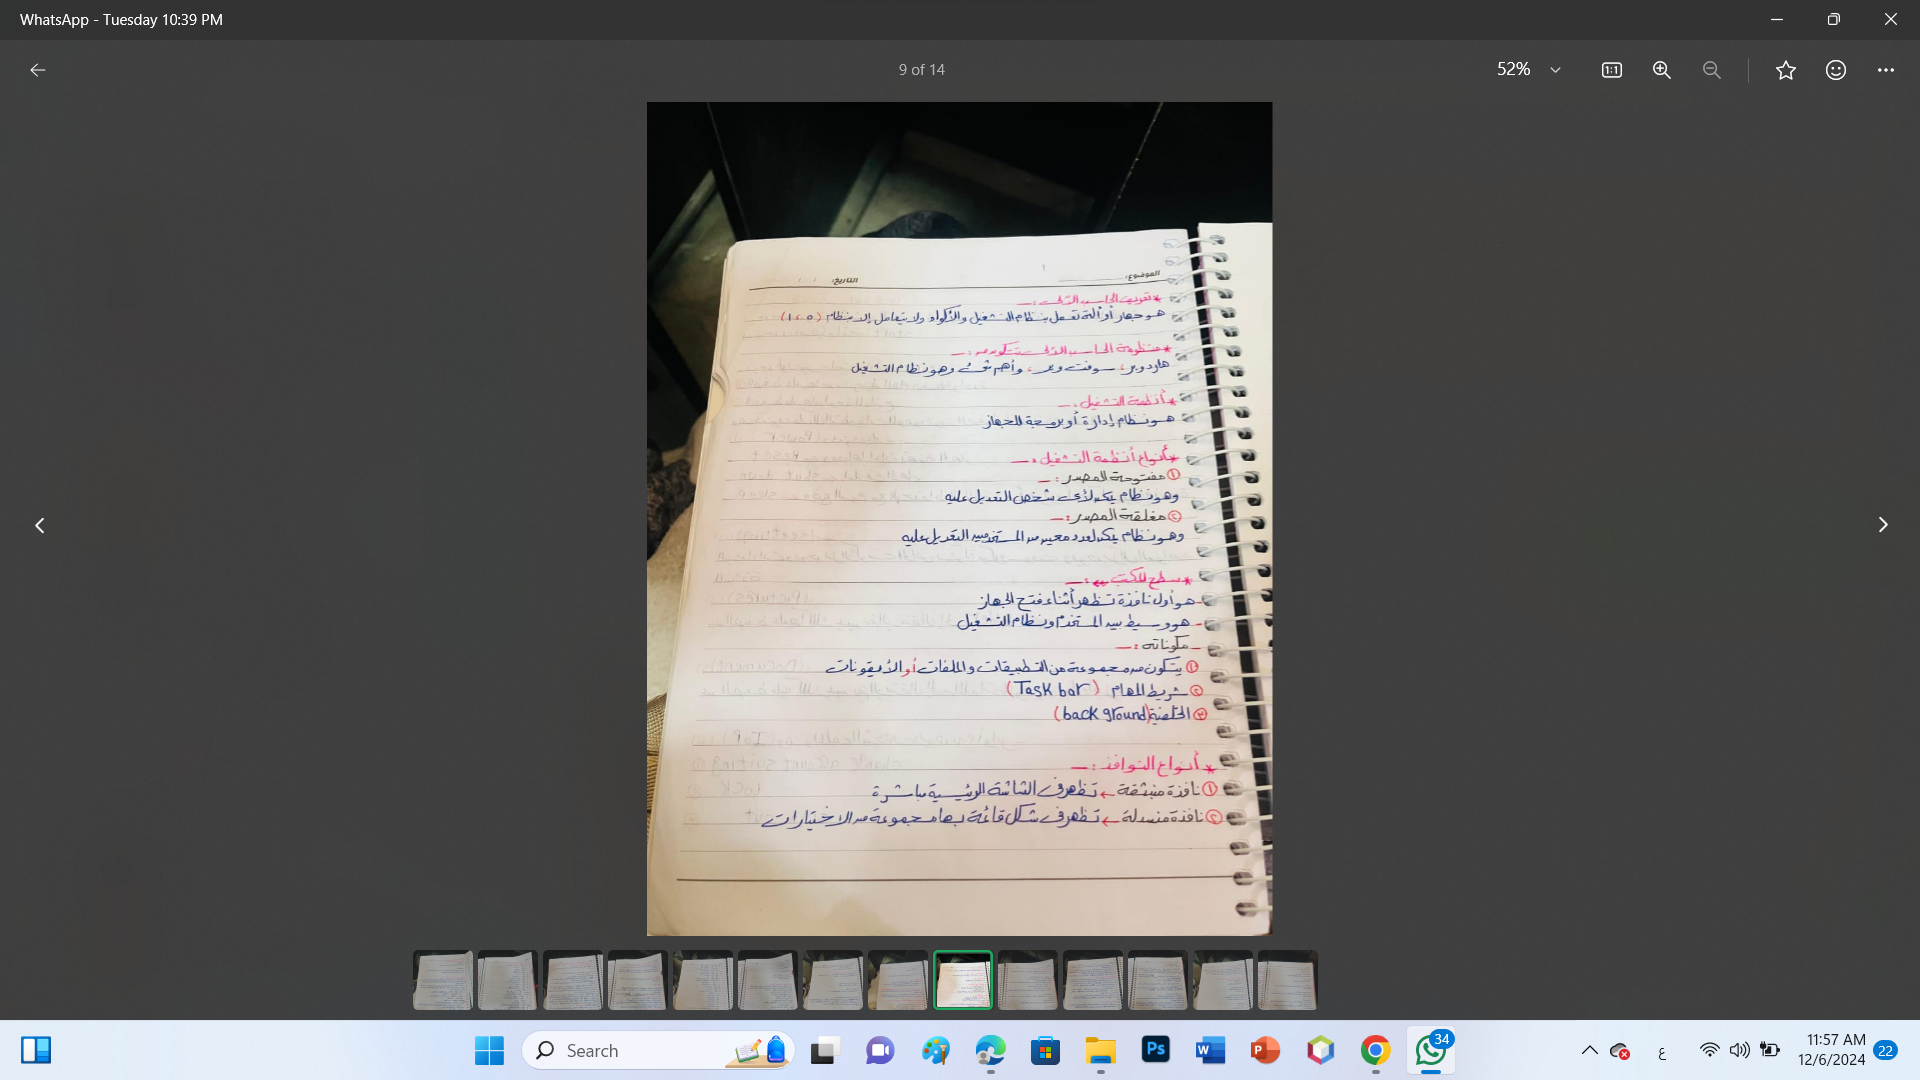 WhatsApp - Tuesday 10:39 PM
9 of 14
52%
1:1
الموضوع:
التاريخ:
* تعريف الحاسب الآلى :ــ
هو جهاز أو آلة تعمل بنظام التشغيل والأكواد ولا يتعامل إلا بنظام (0 ، 1)
* منظومة الحاسب الآلى تتكون من :ــ
هارد وير ، سوفت وير ، وأهم شئ وهو نظام التشغيل
* أنظمة التشغيل :ــ
هو نظام إدارة أو برمجة للجهاز
* أنواع أنظمة التشغيل :ــ
① مفتوحة المصدر :ــ
وهو نظام يمكن لأى شخص التعديل عليه
② مغلقة المصدر :ــ
وهو نظام يمكن لعدد معين من المستخدمين التعديل عليه
* سطح المكتب :ــ
- هو أول نافذة تظهر أثناء فتح الجهاز
- هو وسيط بين المستخدم ونظام التشغيل
- مكوناته :ــ
① يتكون من مجموعة من التطبيقات والملفات أو الأيقونات
② شريط المهام (Task bar)
③ الخلفية (back ground)
* أنواع النوافذ :ــ
① نافذة منبثقة ← تظهر فى الشاشة الرئيسية مباشرة
② نافذة منسدلة ← تظهر فى شكل قائمة بها مجموعة من الاختيارات
Search
Ps
W
P
34
ع
11:57 AM
12/6/2024
22